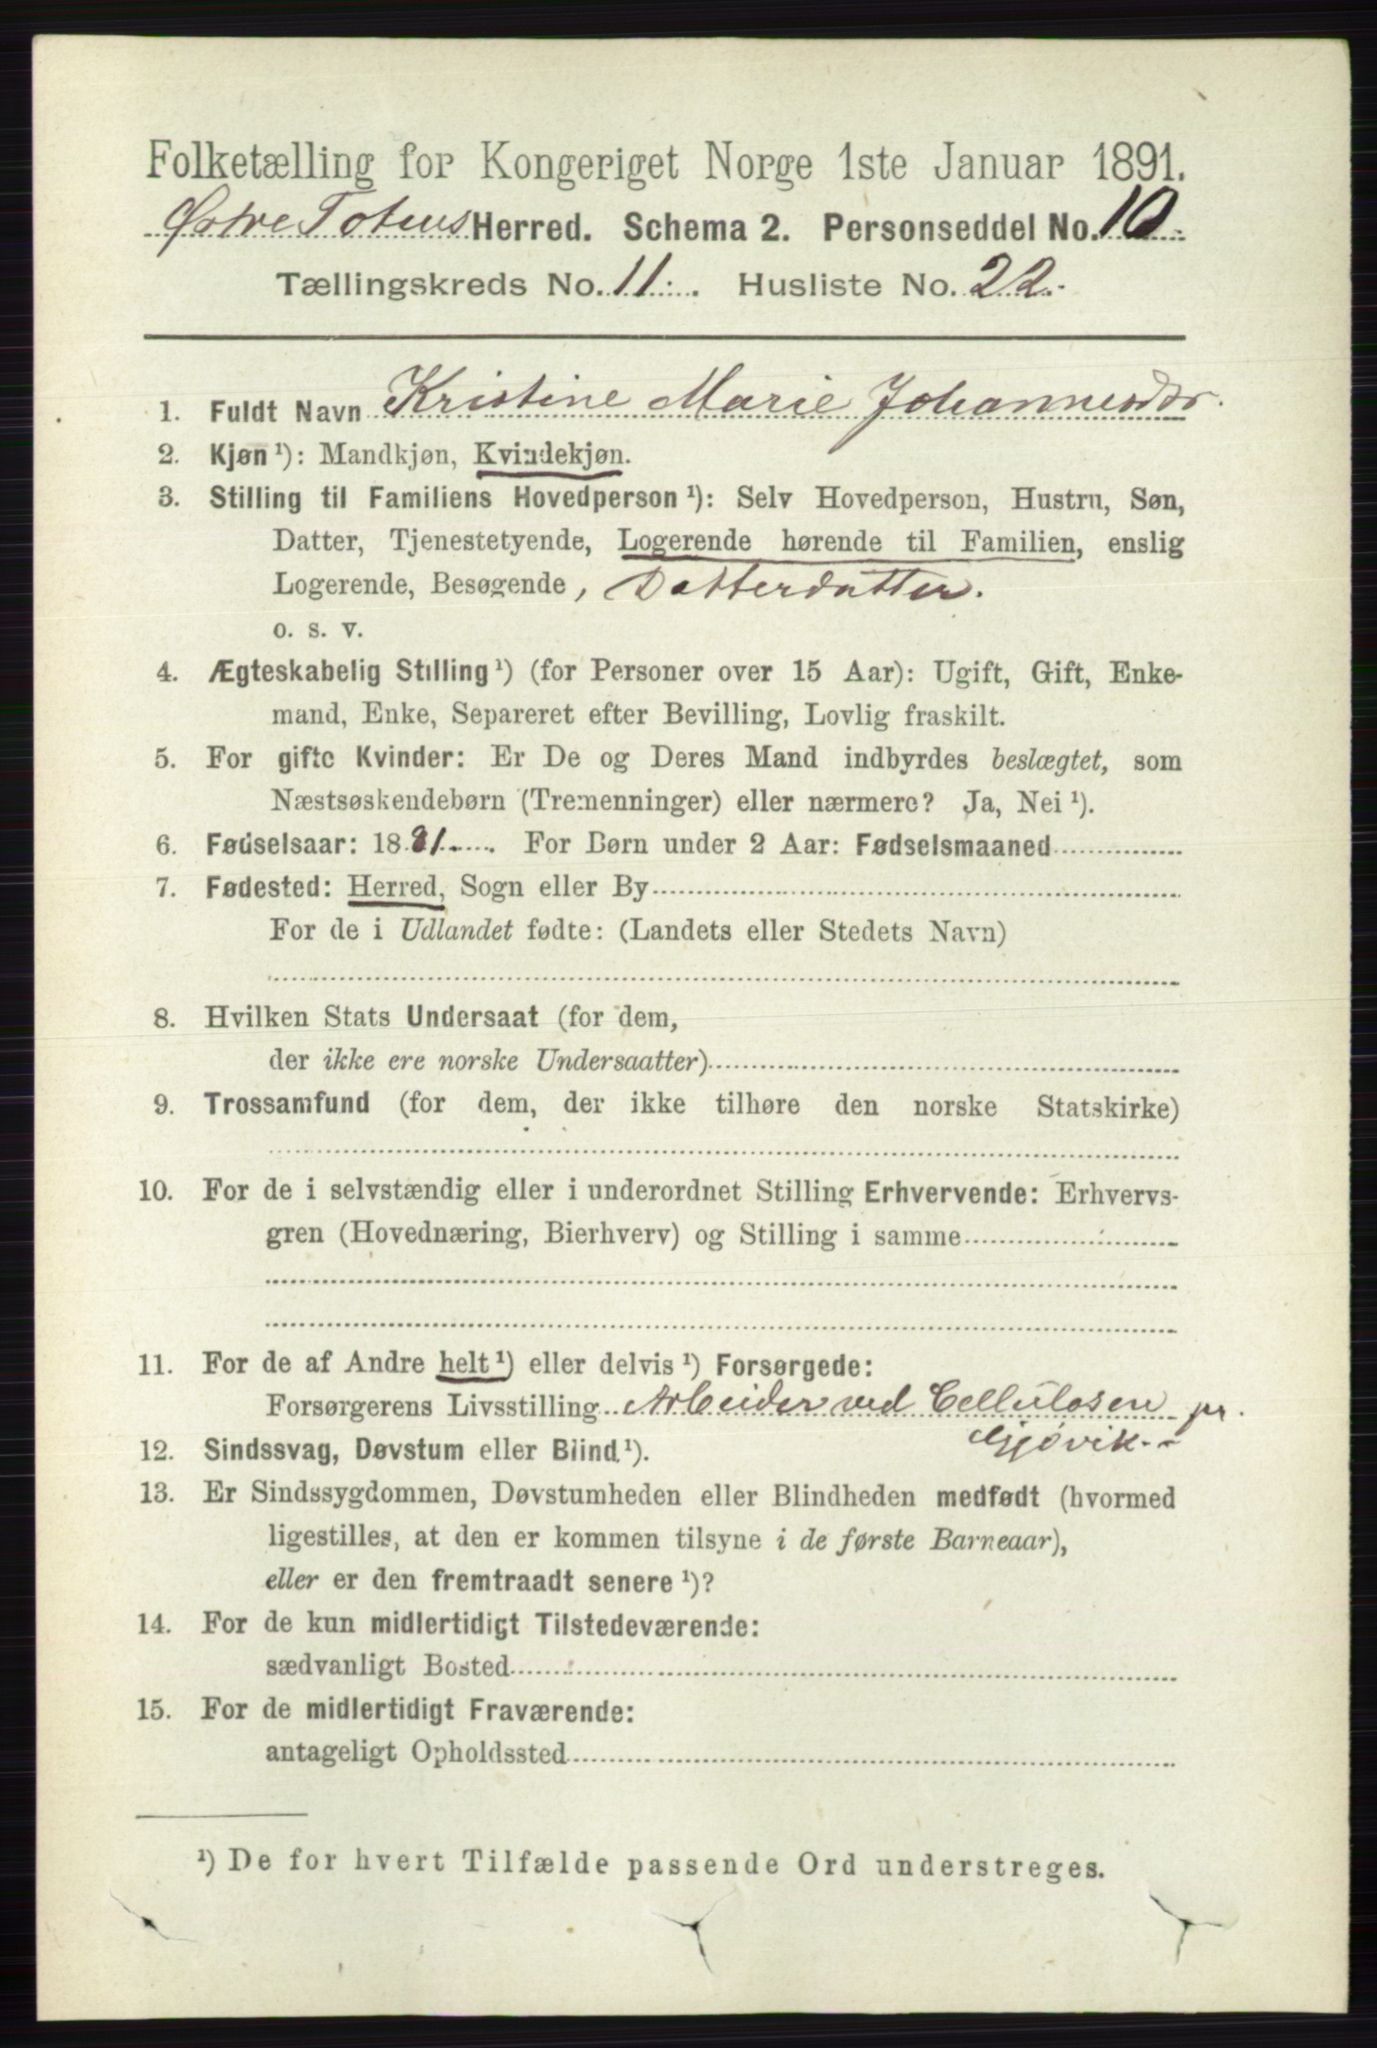 Folketælling for Kongeriget Norge 1ste Januar 1891.
Østre Totens Herred. Schema 2. Personseddel No. 10
Tællingskreds No. 11. Husliste No. 22.
1. Fuldt Navn Kristine Marie Johannesdr.
2. Kjøn ¹): Mandkjøn, Kvindekjøn.
3. Stilling til Familiens Hovedperson ¹): Selv Hovedperson, Hustru, Søn,
Datter, Tjenestetyende, Logerende hørende til Familien, enslig
Logerende, Besøgende, Datterdatter.
o. s. v.
4. Ægteskabelig Stilling ¹) (for Personer over 15 Aar): Ugift, Gift, Enke-
mand, Enke, Separeret efter Bevilling, Lovlig fraskilt.
5. For gifte Kvinder: Er De og Deres Mand indbyrdes beslægtet, som
Næstsøskendebørn (Tremenninger) eller nærmere? Ja, Nei ¹).
6. Fødselsaar: 1881. For Børn under 2 Aar: Fødselsmaaned
7. Fødested: Herred, Sogn eller By
For de i Udlandet fødte: (Landets eller Stedets Navn)
8. Hvilken Stats Undersaat (for dem,
der ikke ere norske Undersaatter)
9. Trossamfund (for dem, der ikke tilhøre den norske Statskirke)
10. For de i selvstændig eller i underordnet Stilling Erhvervende: Erhvervs-
gren (Hovednæring, Bierhverv) og Stilling i samme
11. For de af Andre helt ¹) eller delvis ¹) Forsørgede:
Forsørgerens Livsstilling Arbeider ved Cellulosen pr.
Gjøvik.
12. Sindssvag, Døvstum eller Blind ¹).
13. Er Sindssygdommen, Døvstumheden eller Blindheden medfødt (hvormed
ligestilles, at den er kommen tilsyne i de første Barneaar),
eller er den fremtraadt senere ¹)?
14. For de kun midlertidigt Tilstedeværende:
sædvanligt Bosted
15. For de midlertidigt Fraværende:
antageligt Opholdssted
¹) De for hvert Tilfælde passende Ord understreges.